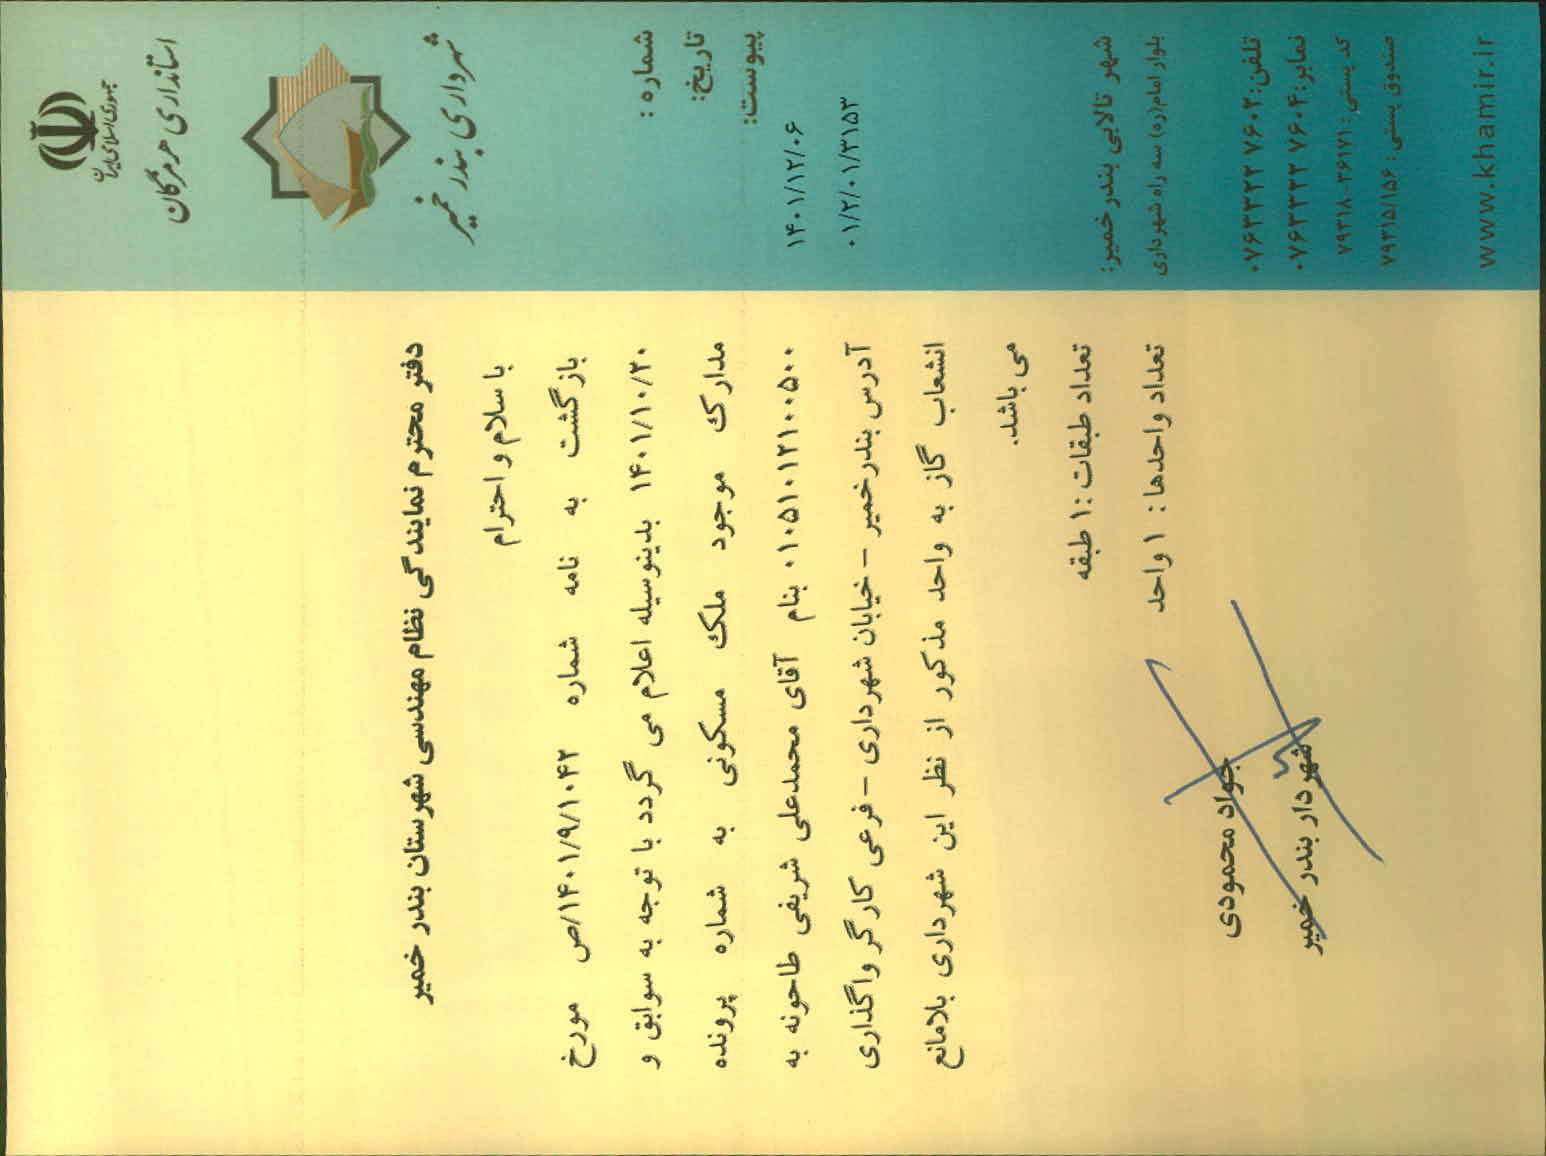 جمهوری اسلامی ایران
استانداری هرمزگان
شهرداری بندر خمیر
شماره :
تاریخ:
پیوست:
۱۴۰۱/۱۲/۰۶
۰۱/۲/۰۱/۳۱۵۳
دفتر محترم نمایندگی نظام مهندسی شهرستان بندر خمیر
با سلام و احترام
بازگشت به نامه شماره ۱۴۰۱/۹/۱۰۴۲/ص مورخ
۱۴۰۱/۱۰/۲۰ بدینوسیله اعلام می گردد با توجه به سوابق و
مدارک موجود ملک مسکونی به شماره پرونده
۰۱۰۵۱۰۱۲۱۰۰۵۰۰ بنام آقای محمدعلی شریفی طاحونه به
آدرس بندرخمیر - خیابان شهرداری - فرعی کارگر واگذاری
انشعاب گاز به واحد مذکور از نظر این شهرداری بلامانع
می باشد.
تعداد طبقات :۱ طبقه
تعداد واحدها: ۱ واحد
جواد محمودی
شهردار بندر خمیر
شهر تالابی بندر خمیر:
بلوار امام(ره) سه راه شهرداری
تلفن: ۰۷۶۳۳۲۲۷۶۰۲
نمابر: ۰۷۶۳۳۲۲۷۶۰۴
کد پستی: ۷۹۳۱۸-۳۶۱۷۱
صندوق پستی: ۷۹۳۱۵/۱۵۶
www.khamir.ir